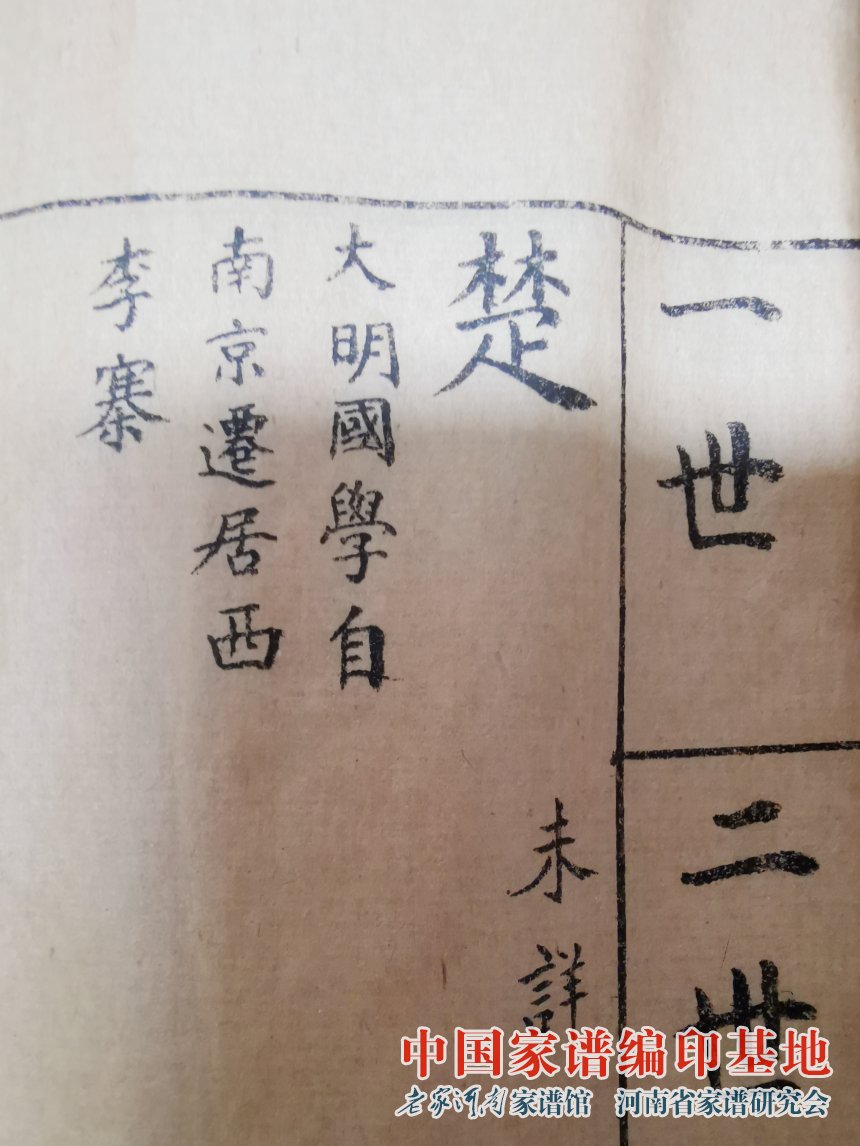 一世
楚
大明國學自
南京遷居西
李寨
二世
未詳
中国家谱编印基地
老家河南家谱馆 河南省家谱研究会